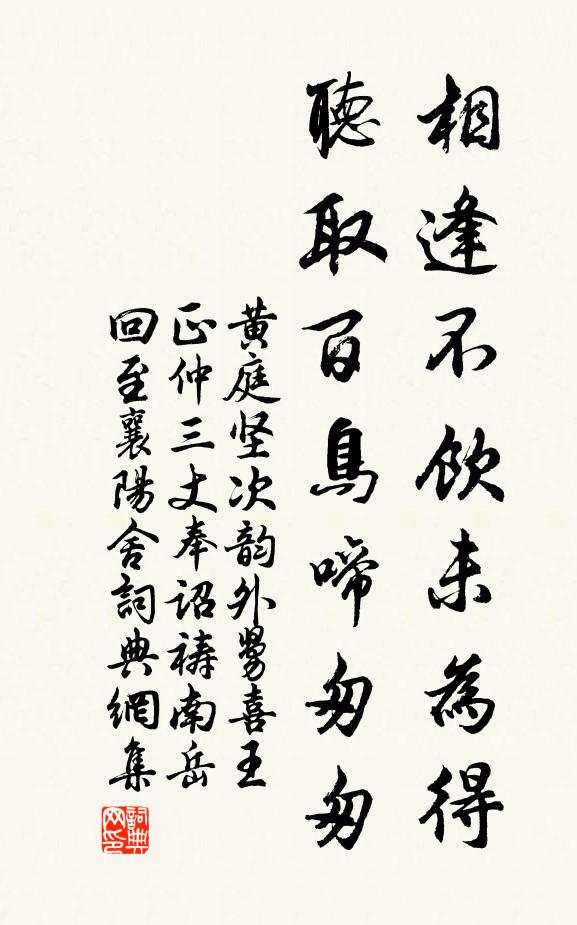 相逢不飲未為得
聽取百鳥啼匆匆
黃庭坚次韵外舅喜王
正仲三丈奉詔禱南岳
回至襄陽舍詞典網集
詞典
网印